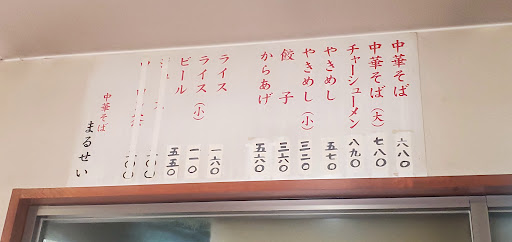 中華そば 六八〇
中華そば(大) 七八〇
チャーシューメン 八九〇
やきめし 五七〇
やきめし(小) 三二〇
餃子 三六〇
からあげ 五六〇
ライス 一六〇
ライス(小) 一一〇
ビール 五五〇
中華そば
まるせい